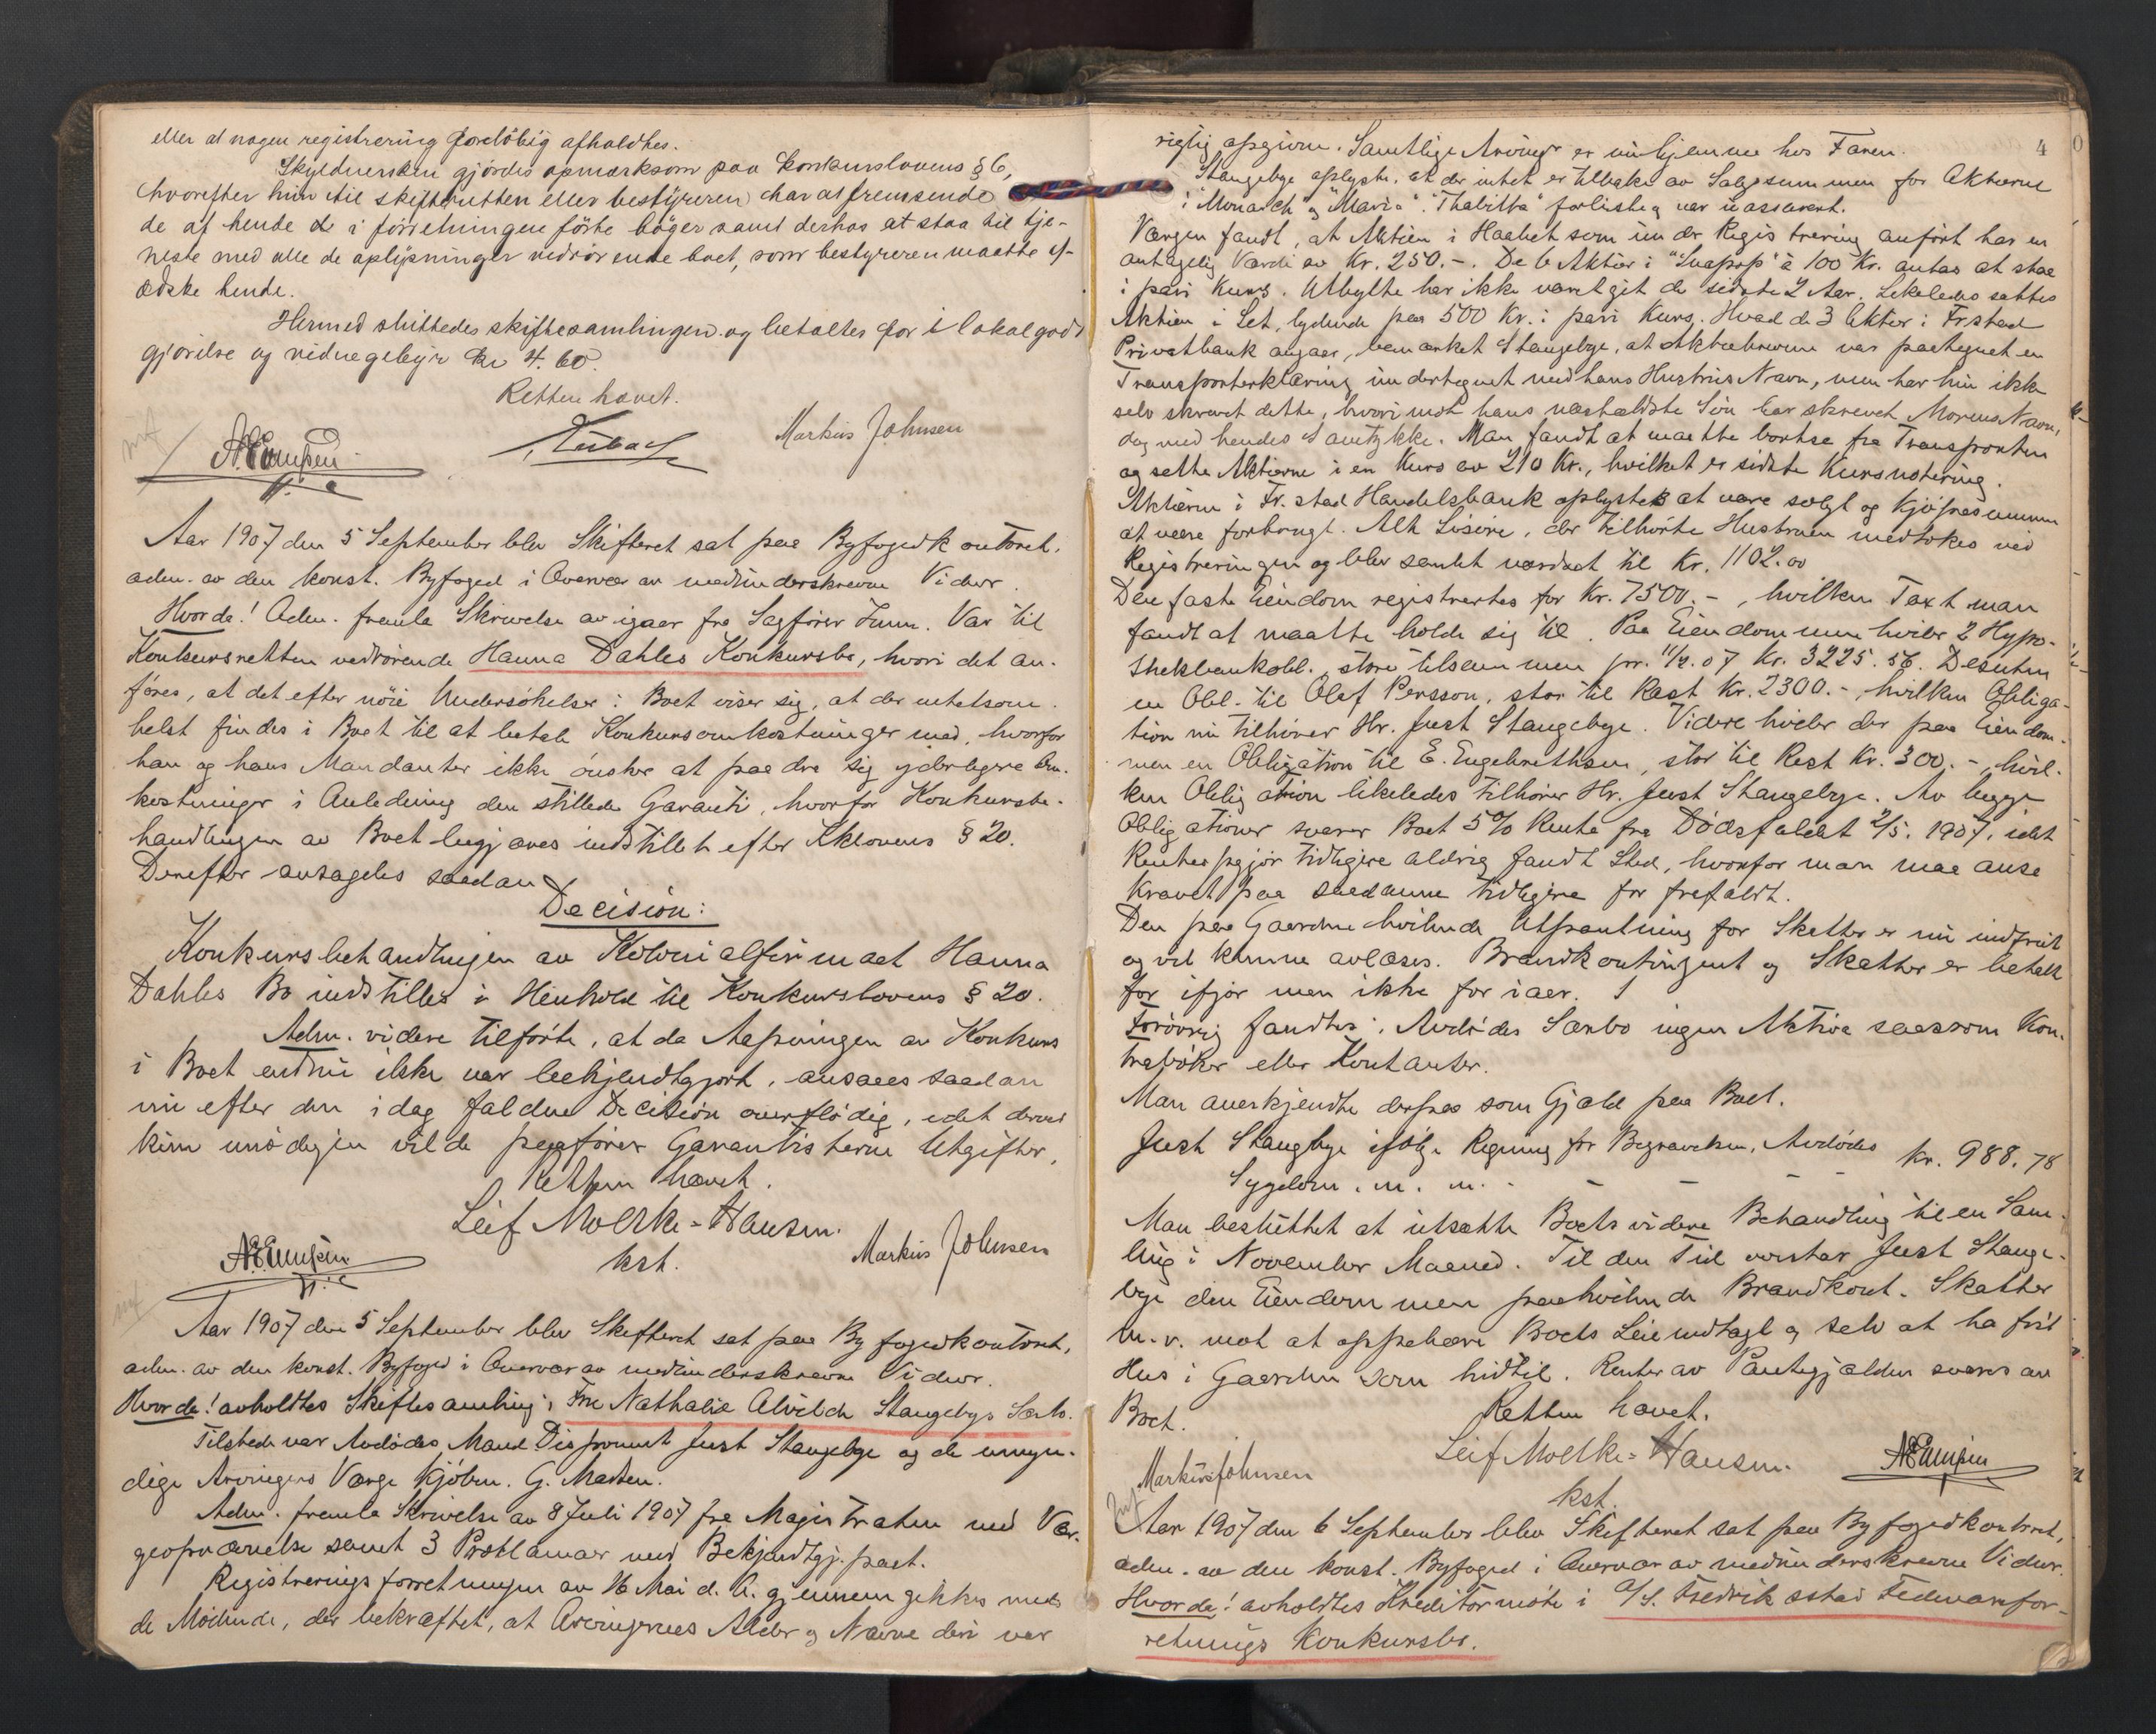 eller at nogen registrering foreløbig afholdtes.
Skyldnersken gjordes opmærksom paa konkurslovens § 6,
hvorefter hun til skifteretten eller bestyreren har at fremsende
de af hende i forretningen førte bøger samt derhos at staa til tje-
neste med alle de oplysninger vedrørende boet, som bestyreren maatte af-
æske hende.
Hermed sluttedes skiftesamlingen og betaltes for lokalgodt
gjørelse og vidnegebyr kr 4.60.
Retten hævet.
Markus Johnsen
Aar 1907 den 5 September blev Skifteret sat paa Byfogedkontoret,
adm. av den konst. Byfoged i Overvær av medunderskrevne Vidner.
Hvorda! Adm. fremla Skrivelse av igaar fra Sagfører Var til
Konkursretten vedrørende Hanna Dahles Konkursbo, hvori det an-
føres, at det efter nøie Undersøkelser i Boet viser sig, at der intetsom-
helst findes i Boet til at betale Konkursomkostninger med, hvorfor
han og hans Mandanter ikke ønsker at paadra sig yderligere Om-
kostninger i Anledning den stillede Garanti, hvorfor Konkursbe-
handlingen av Boet begjæres indstillet efter Kklovens § 20.
Derefter avsagdes saadan
Decision:
Konkursbehandlingen av Kolonialfirmaet Hanna
Dahles Bo indstilles i Henhold til Konkurslovens § 20.
Adm. videre tilførte, at da Aapningen av Konkurs
i Boet endnu ikke var bekjendtgjort, ansaaes saadan
nu efter den idag faldne Decision overflødig, idet derved
kun unødigen vilde paaføres Garantisterne Utgifter.
Retten hævet.
Leif Moltke-Hansen.
kst.
Markus Johnsen
Aar 1907 den 5 September blev Skifteret sat paa Byfogedkontoret,
adm. av den konst. Byfoged i Overvær av medunderskrevne Vidner.
Hvorda! avholdtes Skiftesamling i Fru Nathalie Alvilde Stangebyes Særbo.
Tilstede var Avdødes Mand Disponent Just Stangebye og de umyn-
dige Arvingers Værge Kjøbm. G. Madsen.
Adm. fremla Skrivelse av 8 Juli 1907 fra Magistraten med Vær-
geopnævnelse samt 3 Proklamaer med Bekjendtgj. paat.
Registreringsforretningen av 16 Mai d. A. gjennemgikkes med
de Mødende, der bekræftet, at Arvingernes Alder og Navne deri var
4
rigtig opgivne. Samtlige Arvinger er nu hjemme hos Faren.
Stangebye oplyste, at der intet er tilbake av Salgssummen for Aktierne
i "Monarch" og "Maria". "Thabitha" forliste og var uassurert.
Værgen fandt, at Aktien i Haabet som under Registrering anført har en
antagelig Værdi av Kr. 250.-. De 6 Aktier i "Snapop" à 100 Kr. antas at staa
i pari Kurs. Utbytte har ikke været git de sidste 2 Aar. Likeledes sattes
Aktien i Set, lydende paa 500 Kr. i pari Kurs. Hvad de 3 Aktier i Frstad
Privatbank angaar, bemærket Stangebye, at Aktiebrevene var paategnet en
Transporterklæring undertegnet med hans Hustrus Navn, men har hun ikke
selv skrevet dette, hvorimot hans næstældste Søn har skrevet Morens Navn,
dog med hendes Samtykke. Man fandt at maatte bortse fra Transporten
og sette Aktierne i en Kurs av 210 Kr., hvilket er sidste Kursnotering.
Aktierne i Fr.stad Handelsbank oplystes at være solgt og Kjøpesummen
at være forbrugt. Alt Løsøre, der tilhørte Hustruen medtokes ved
Registreringen og blev samlet værdsat til Kr. 1102.00
Den faste Eiendom registrertes for Kr. 7500.-, hvilken Taxt man
fandt at maatte holde sig til. Paa Eiendommen hviler 2 Hypo-
thekbankobl., store tilsammen pr. 11/9.07 Kr. 3225.56. Desuten
en Obl. til Olaf Persson, stor til Rest Kr. 2300.-, hvilken Obliga-
tion nu tilhører Hr. Just Stangebye. Videre hviler der paa Eiendom-
men en Obligation til E. Engebrethsen, stor til Rest Kr. 300.-, hvil-
ken Obligation likeledes tilhører Hr. Just Stangebye. Av begge
Obligationer svarer Boet 5% Rente fra Dødsfaldet 2/5. 1907, idet
Renteopgjør tidligere aldrig fandt Sted, hvorfor man maa anse
Kravet paa saadanne tidligere for frafaldt.
Den paa Gaarden hvilende Utpantning for Skatter er nu indfriet
og vil kunne avlæses. Brandkontingent og Skatter er betalt
for ifjor men ikke for iaar.
Forøvrig fandtes i Avdødes Særbo ingen Aktiva saasom Kon-
trabøker eller Kontanter.
Man anerkjendte derpaa som Gjæld paa Boet.
Just Stangebye ifølge Regning for Begravelsen, Avdødes
Sygdom. m. m. - - - - Kr. 988.78
Man besluttet at utsætte Boets videre Behandling til en Sam-
ling i November Maaned. Til den Tid overtar Just Stange-
bye den Eiendommen paahvilende Brandkont. Skatter
m. v. mot at oppebære Boets Leieindtægt og selv at ha frit
Hus i Gaarden som hidtil. Renter av Pantegjælden svares av
Boet.
Retten hævet.
Leif Moltke-Hansen.
kst.
Markus Johnsen
Aar 1907 den 6 September blev Skifteret sat paa Byfogedkontoret,
adm. av den konst. Byfoged i Overvær av medunderskrevne Vidner.
Hvorda! avholdtes Kreditormøte i A/S. Fredrikstad Fedevarefor-
retnings Konkursbo.